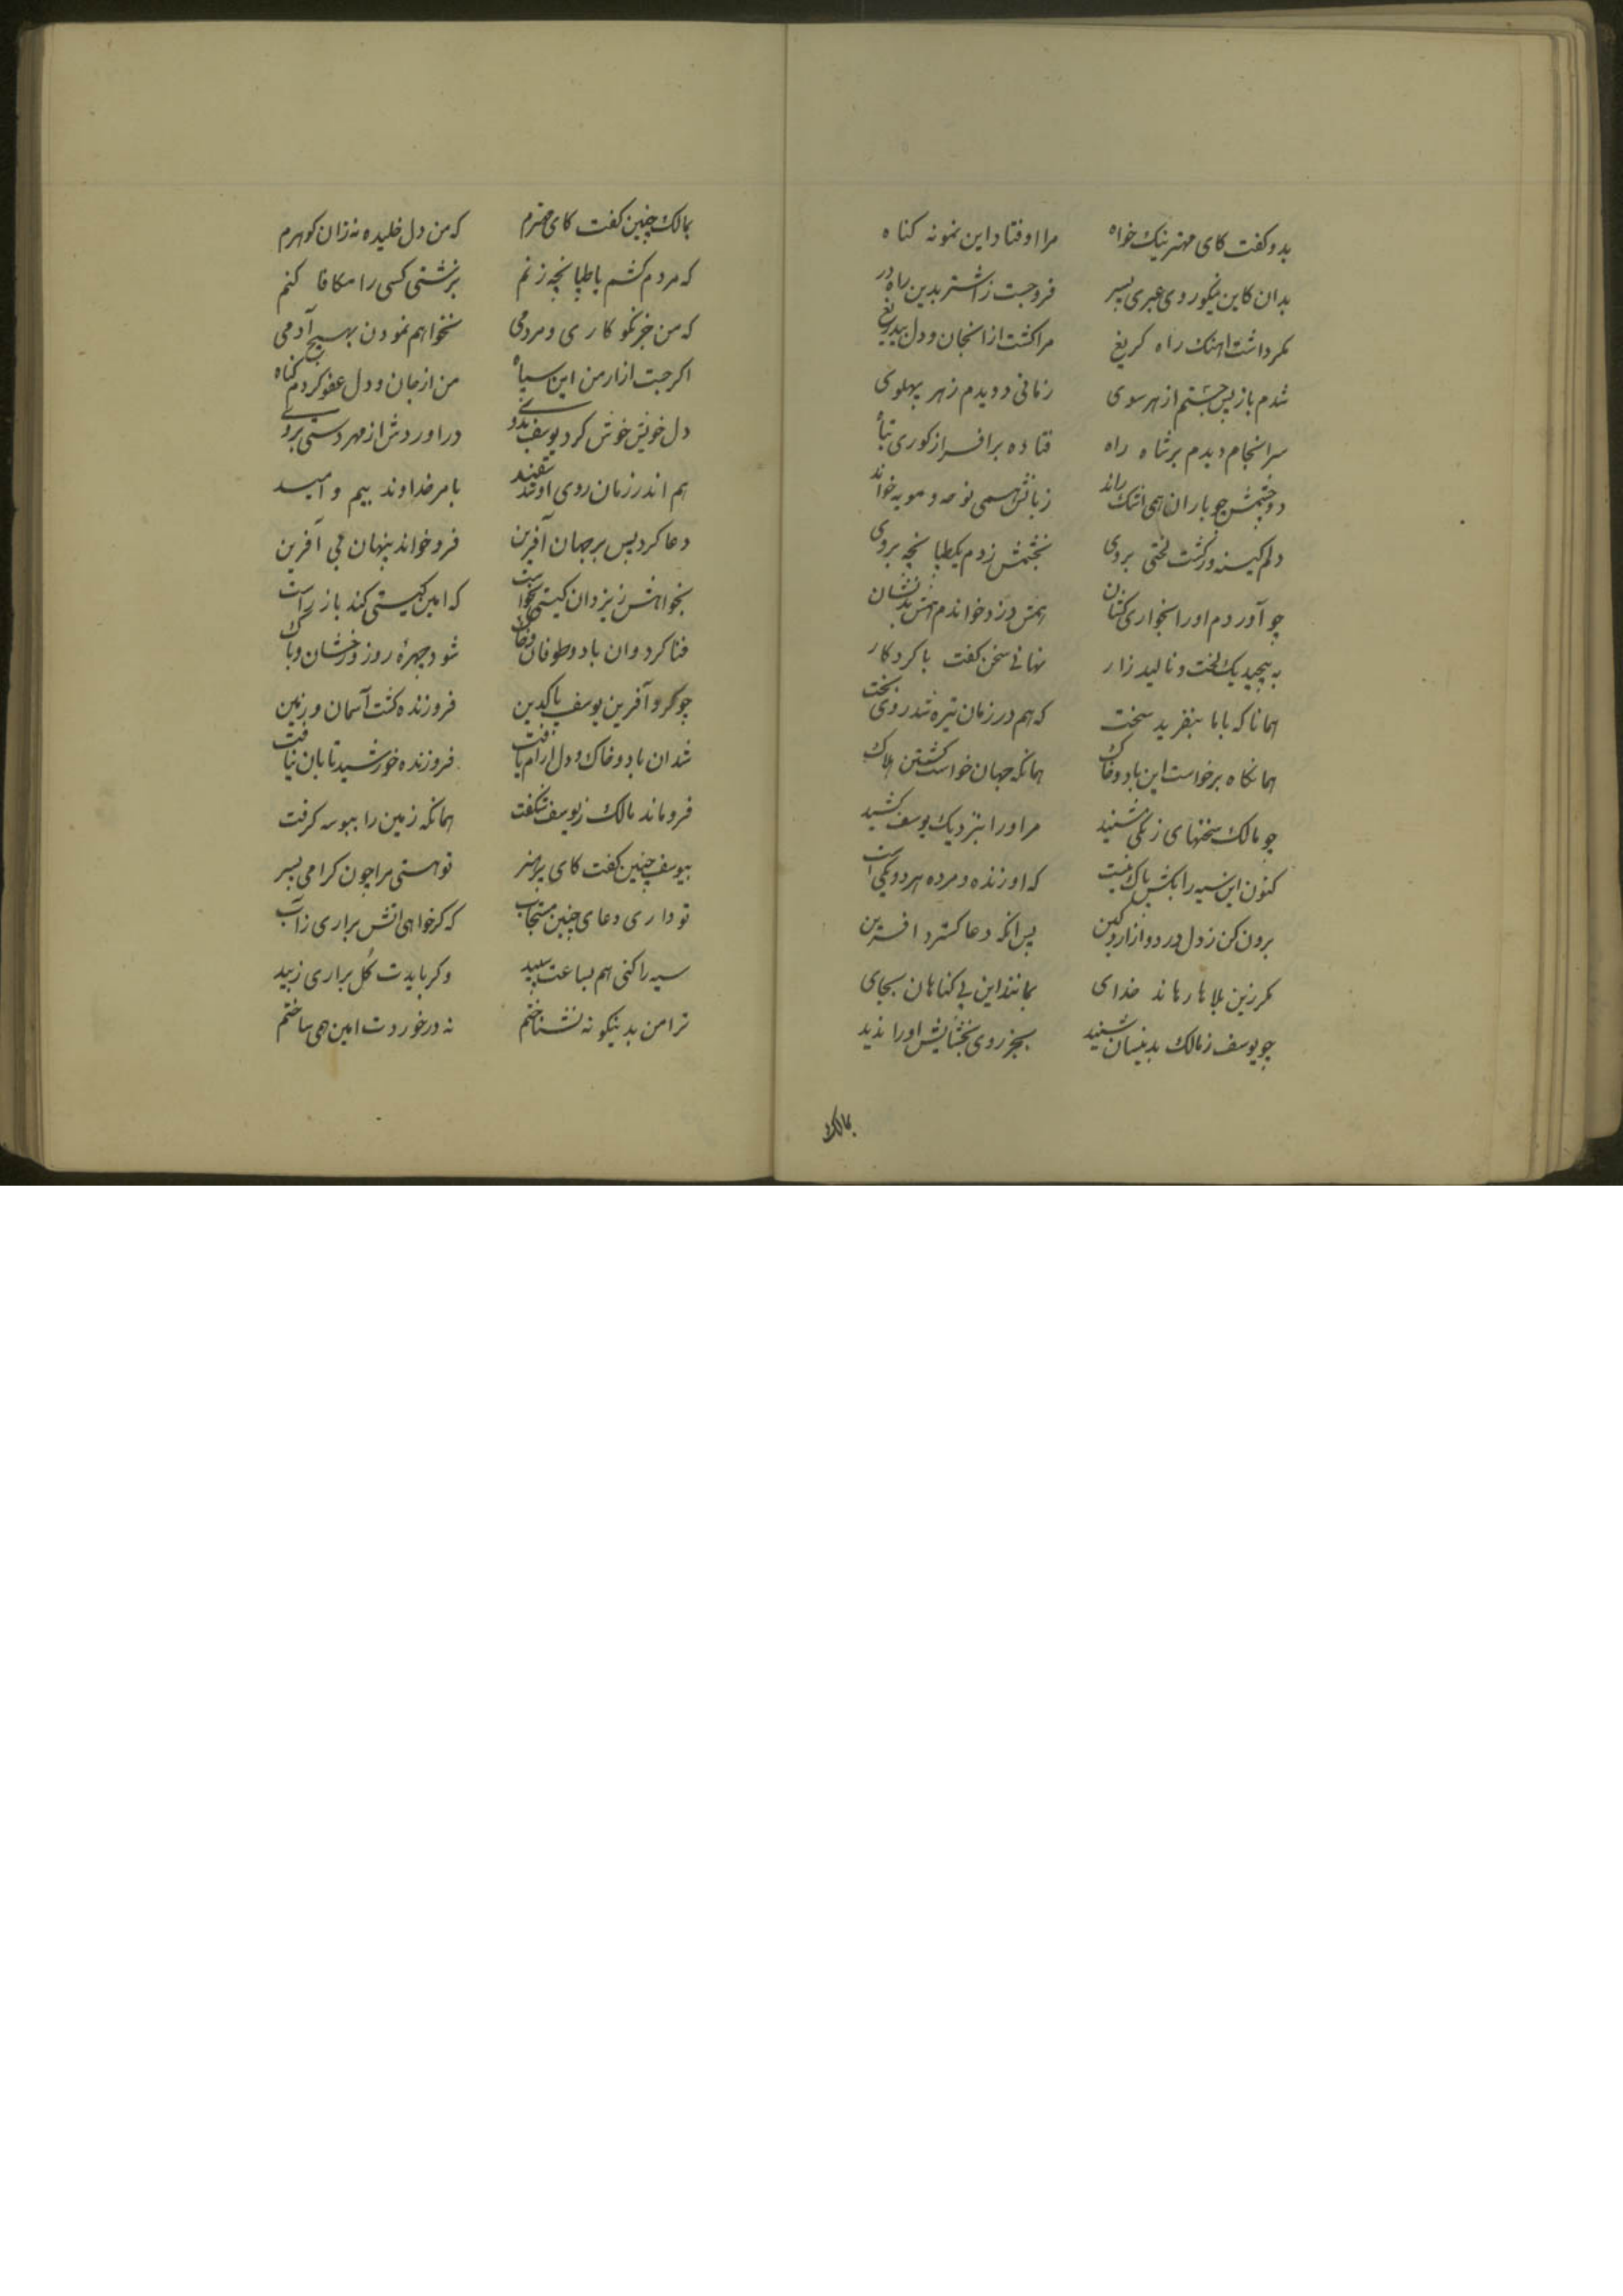 بدو گفت کای مهتر نیک خواه مرا اوفتاد این نمونه کناه
بدان کاین نیکوروی عبری پسر فروجست ز اشتر بدین راه در
مکر داشت اهنک راه کریغ مرا کشت از انجان و دل بیدریغ
شدم باز پس جستم از هر سوی زمانی دویدم ز هر پهلوی
سرانجام دیدم بر شاه راه فتاده بر افراز کوری تباه
دو چشمش چو باران همی اشک راند زبانش همی نوحه و مویه خواند
دلم کینه ور کشت لختی بروی بخشمش زدم یک طپانچه بروی
چو آوردم اورا بخواری کشان همش دزد خواندم همش بد نشان
به پیچید یک لخت و نالید زار نهانی سخن گفت با کردکار
همانا که بابا بنفرید سخت که هم در زمان تیره شد روی بخت
همانکاه برخواست این باد و خاک همانکه جهان خواست کشتن هلاک
چو مالک سخنهای زنکی شنید مر اورا بنزدیک یوسف کشید
کنون این سیه را بکش باک نیست که او زنده و مرده هر دو یکی است
برون کن ز دل درد و ازار و کین پس آنکه دعا کستر و افرین
مکر زین بلاها رهاند خدای بمانند این بی کناهان بجای
چو یوسف ز مالک بدینسان شنید بجز روی بخشایش اورا ندید
بمالک
بمالک چنین گفت کای مهترم که من دل خلیده نه زان کوهرم
که مردم کشم با طپانچه زنم بزشتی کسی را مکافا کنم
که من جز نکو کاری و مردمی نخواهم نمودن بهیچ آدمی
اکر جست ازار من این سیاه من از جان و دل عفو کردم کناه
دل خویش خوش کرد یوسف بدوی دراوردش از مهر دستی بروی
هم اندر زمان روی او شد سفید بامر خداوند بیم و امید
دعا کرد پس بر جهان آفرین فرو خواند پنهان می آفرین
بخواهش ز یزدان کیتی بخواست که امین کیتی کند باز راست
فنا کرد وان باد و طوفان و خاک شود چهرهٔ روز رخشان و پاک
چو کرد آفرین یوسف پاکدین فروزنده کشت آسمان و زمین
شد ان باد و خاک و دل ارام یافت فروزنده خورشید تابان بتافت
فرو ماند مالک ز یوسف شکفت همانکه زمین را ببوسه کرفت
بیوسف چنین گفت کای پر هنر تو هستی مرا چون کرامی پسر
تو داری دعای چنین مستجاب که کر خواهی اتش براری ز آب
سیه را کنی هم بساعت سپید وکر بایدت کُل براری ز بید
ترا من بدینکونه نشناختم نه در خوردت امین همی ساختم